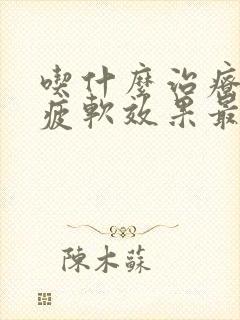 喫什麼治療
疲軟效果最
陳木蘇